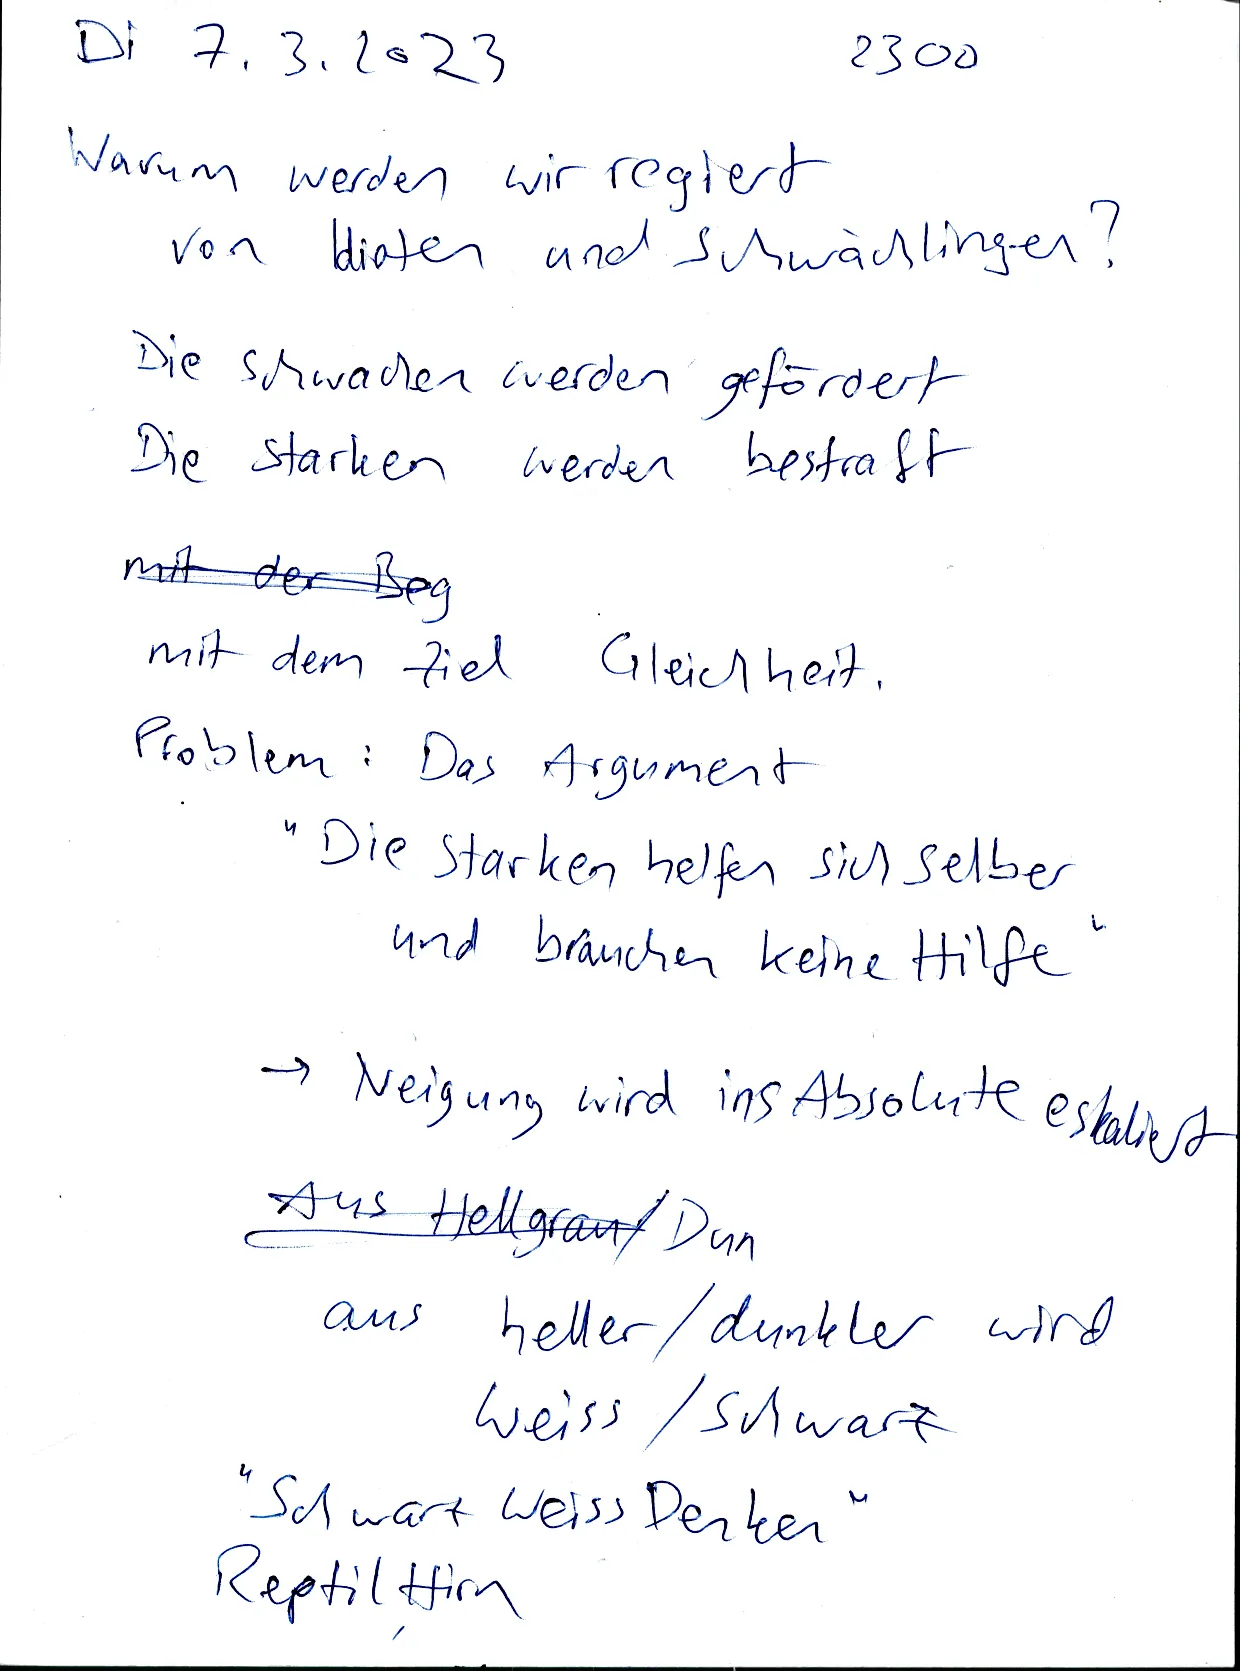 Di 7.3.2023 2300
Warum werden wir regiert
von Idioten und Schwächlingen?
Die schwachen werden gefördert
Die starken werden bestraft
mit der Beg
mit dem Ziel Gleichheit.
Problem: Das Argument
"Die Starken helfen sich selber
und brauchen keine Hilfe"
→ Neigung wird ins Absolute eskaliert
Aus Hellgrau/Dun
aus heller/dunkler wird
Weiss/Schwarz
"Schwarz Weiss Denken"
Reptil Hirn